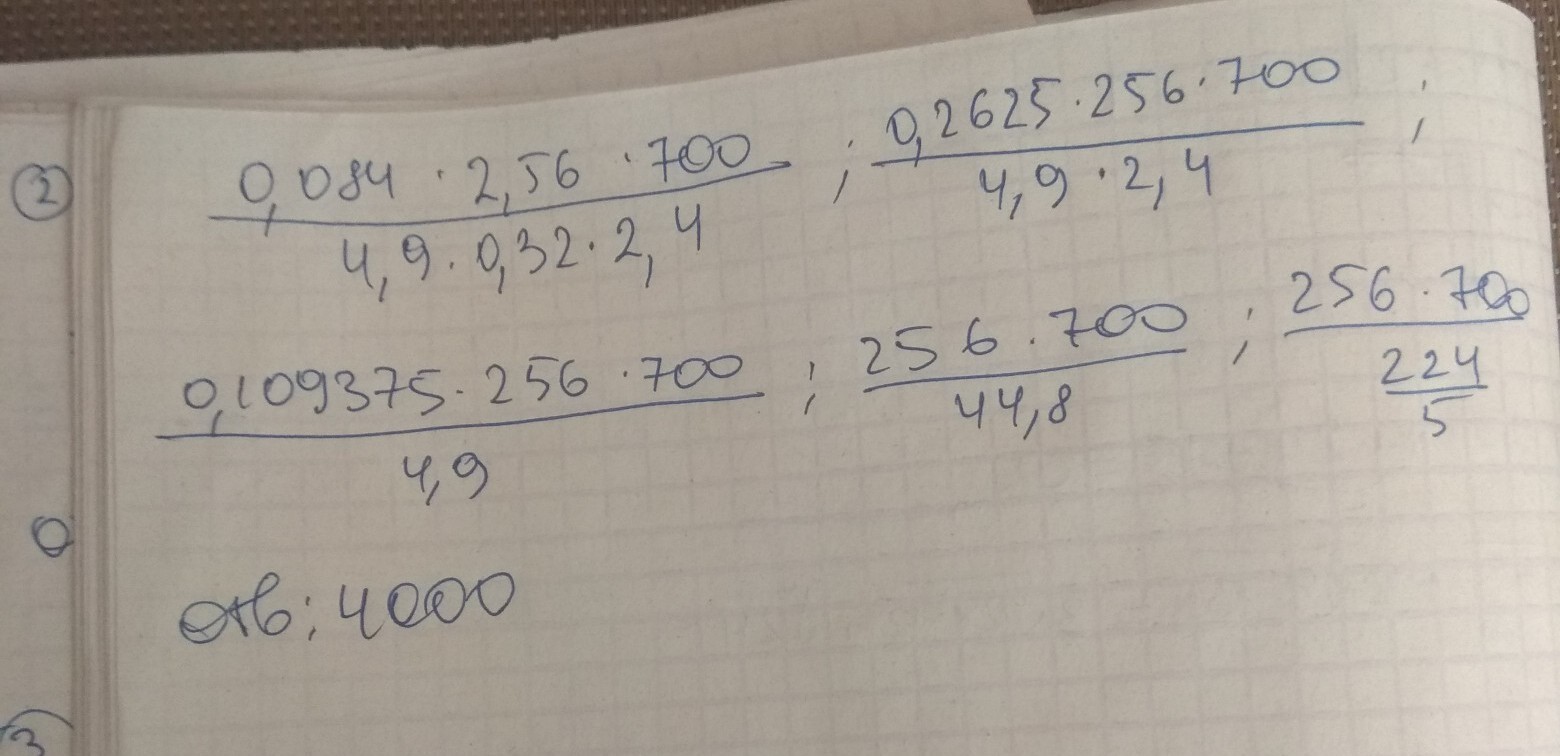 ② 0,084 · 2,56 · 700 / 4,9 · 0,32 · 2,4 ; 0,2625 · 256 · 700 / 4,9 · 2,4 ;
0,109375 · 256 · 700 / 4,9 ; 256 · 700 / 44,8 ; 256 · 700 / 224/5
0
отв: 4000
3